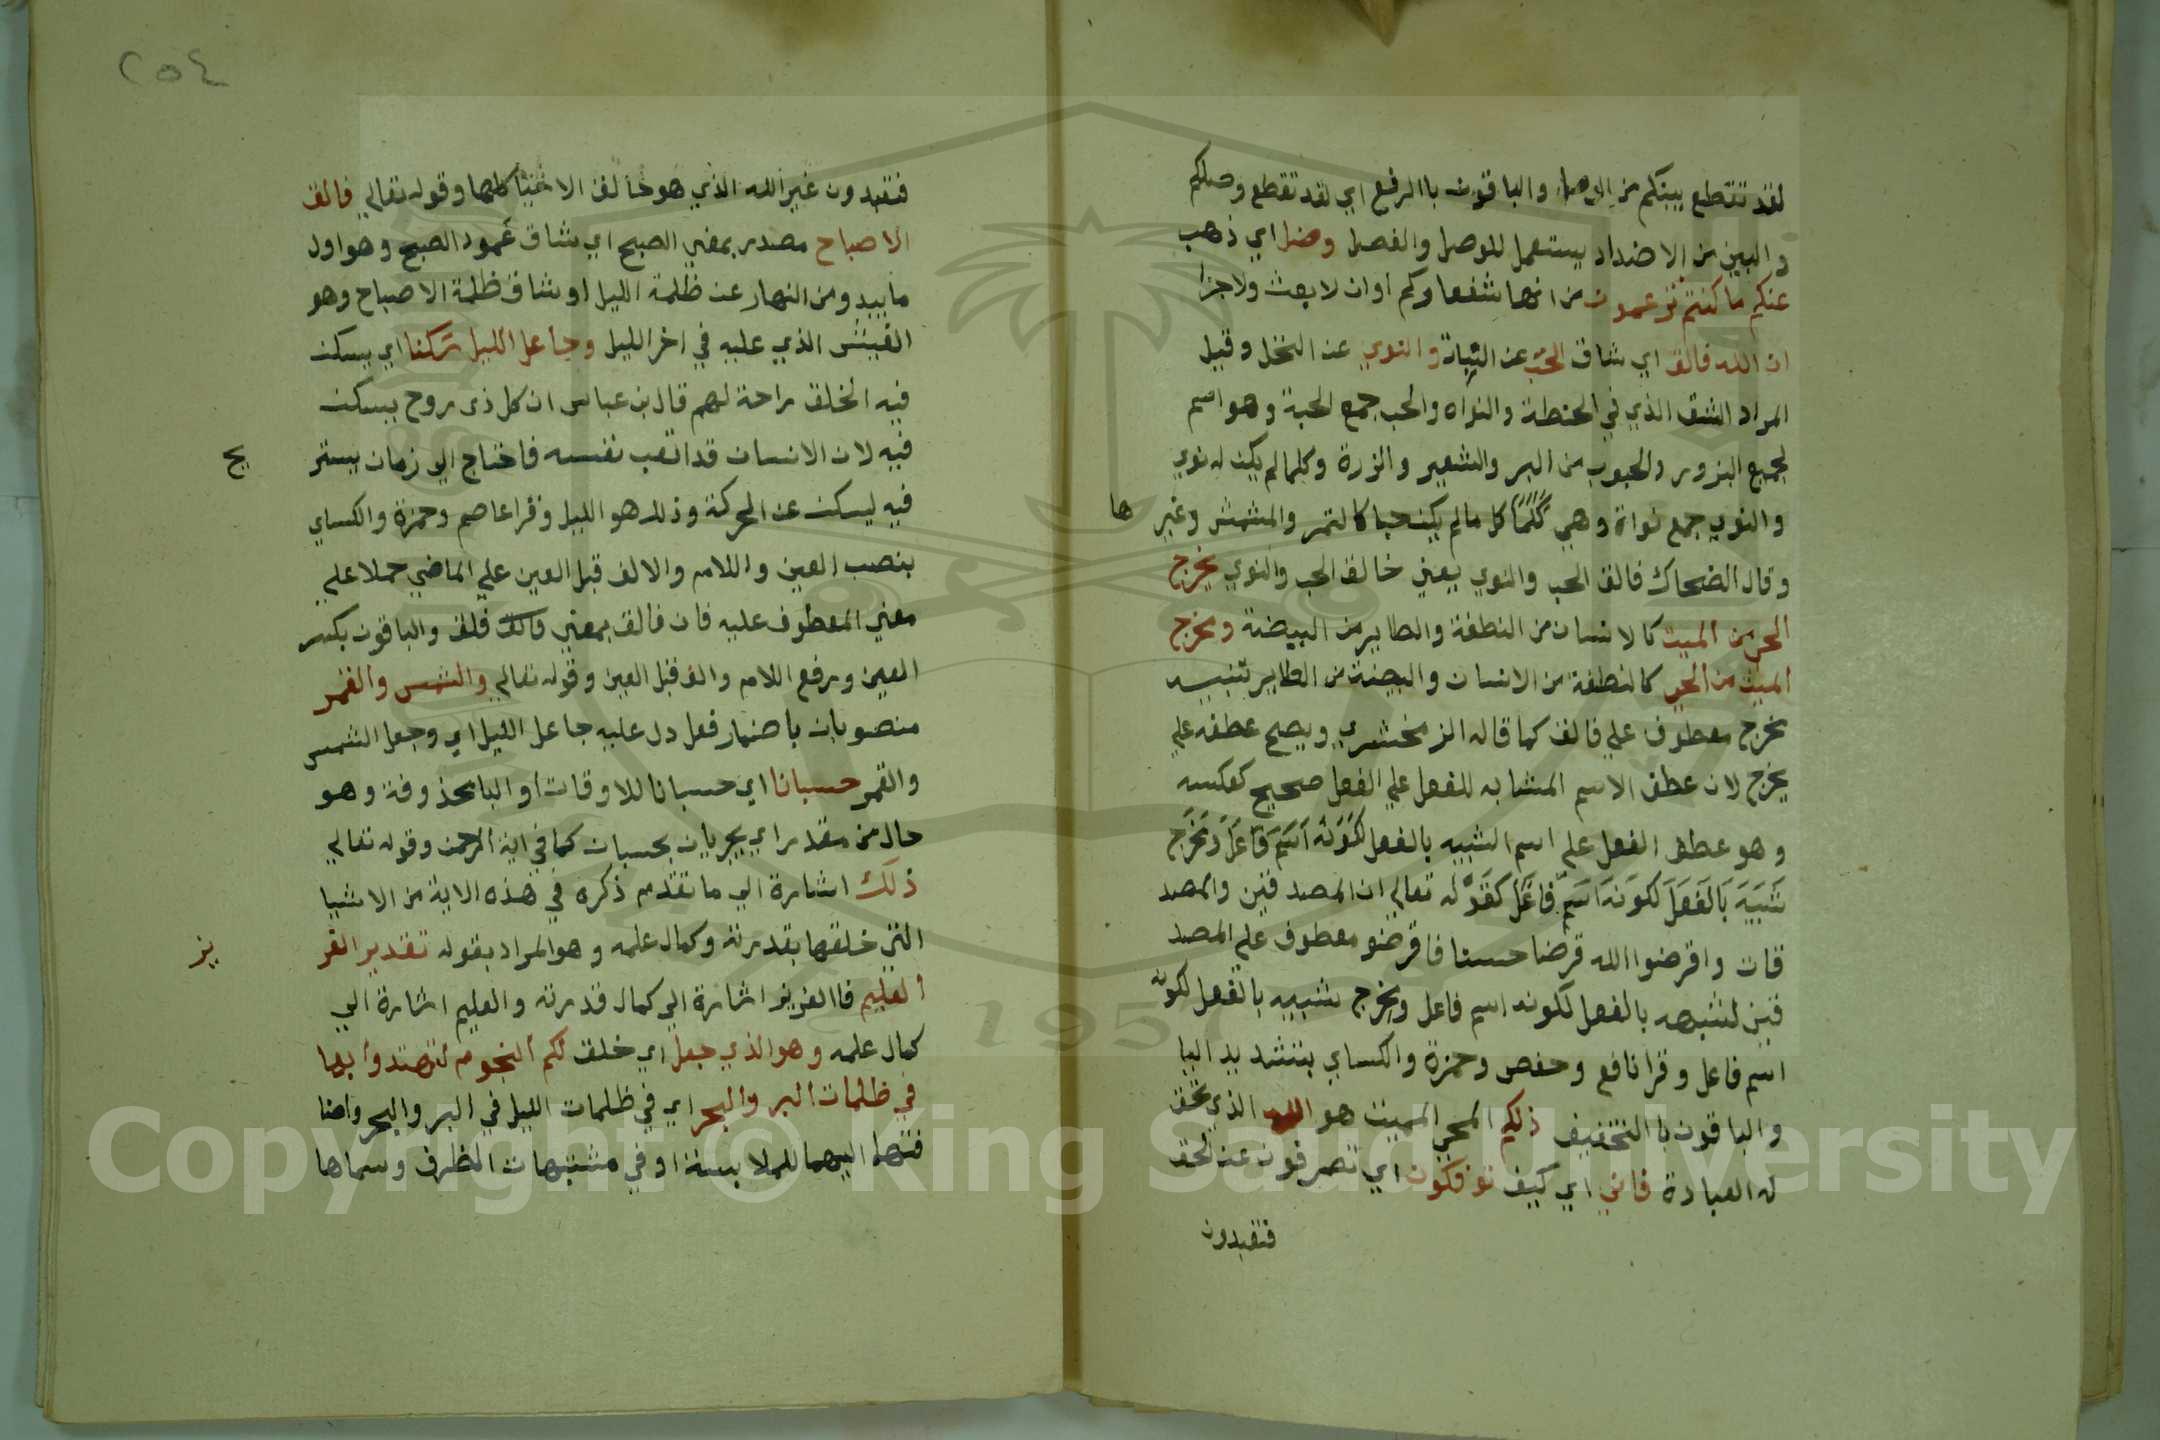 لقد تقطع بينكم من الوصل والباقون باالرفع اي لقد تقطع وصلكم
والبين من الاضداد يستعمل للوصل والفصل وضل اي ذهب
عنكم ما كنتم تزعمون من انها شفعاوكم اوان لا بعث ولاجزا
ان الله فالق اي شاق الحب عن النبات والنوي عن النخل وقيل
المراد الشق الذي في الحنطة والنواه والحب جمع الحبة وهو اسم
لجميع البزور والحبوب من البر والشعير والزرة وكلما لم يكن له نوي
والنوي جمع نواة وهي كلما كل مالم يكن حبا كالتمر والمشمش وغير ها
وقال الضحاك فالق الحب والنوي يعني خالق الحب والنوي يخرج
الحي من الميت كالانسان من النطفة والطاير من البيضة ومخرج
الميت من الحي كالنطفة من الانسان والبيضة من الطاير تنبيه
مخرج معطوف علي فالق كما قاله الزمخشري ويصح عطفه علي
يخرج لان عطف الاسم المشابه للفعل علي الفعل صحيح كعكسه
وهو عطف الفعل علي اسم الشبيه بالفعل لكونه اسم فاعل ومخرج
شبيه بالفعل لكونه اسم فاعل كقوله تعالي ان المصدقين والمصد
قات واقرضوا الله قرضا حسنا فاقرضو معطوف علي المصد
قين لشبهه بالفعل لكونه اسم فاعل ويخرج شبيه بالفعل لكونه
اسم فاعل وقرا نافع وحفص وحمزة والكساي بتشديد اليا
والباقون باالتخفيف ذلكم المحي المميت هو الله الذي تحق
له العبادة فاني اي كيف توفكون اي تصرفون عن الحق
فتعبدون
٢٥٤
فتعبدون غير الله الذي هو خالق الاشيا كلها وقوله تعالي فالق
الاصباح مصدر بمعني الصبح اي شاق عمود الصبح وهو اول
ما يبدو من النهار عن ظلمة الليل او شاق ظلمة الاصباح وهو
الغبش الذي عليه في اخر الليل وجاعل الليل سكنا اي يسكن
فيه الخلق راحة لهم قال بن عباس ان كل ذي روح يسكن
فيه لان الانسان قد اتعب نفسه فاحتاج الي زمان يستر يح
فيه ليسكن عن الحركة وذلك هو الليل وقرا عاصم وحمزة والكساي
بنصب العين واللام والالف قبل العين علي الماضي حملا علي
معني المعطوف عليه فان فالق بمعني فلق والباقون بكسر
العين ورفع اللام والف قبل العين وقوله تعالي والشمس والقمر
منصوبان باضمار فعل دل عليه جاعل الليل اي وجعل الشمس
والقمر حسبانا اي حسبانا للاوقات او البا محذوفة وهو
حال من مقدر اي يجريان بحسبان كما في اية الرحمن وقوله تعالي
ذلك اشارة الي ما تقدم ذكره في هذه الاية من الاشيا
التي خلقها بقدرته وكمال علمه وهو المراد بقوله تقدير العز يز
العليم فاالعزيز اشارة الي كمال قدرته والعليم اشارة الي
كمال علمه وهو الذي جعل اي خلق لكم النجوم لتهتدوا بها
في ظلمات البر والبحر اي في ظلمات الليل في البر والبحر واضا
فتها اليهما للملابسة او في مشتبهات الطرق وسماها
Copyright © King Saud University
1957